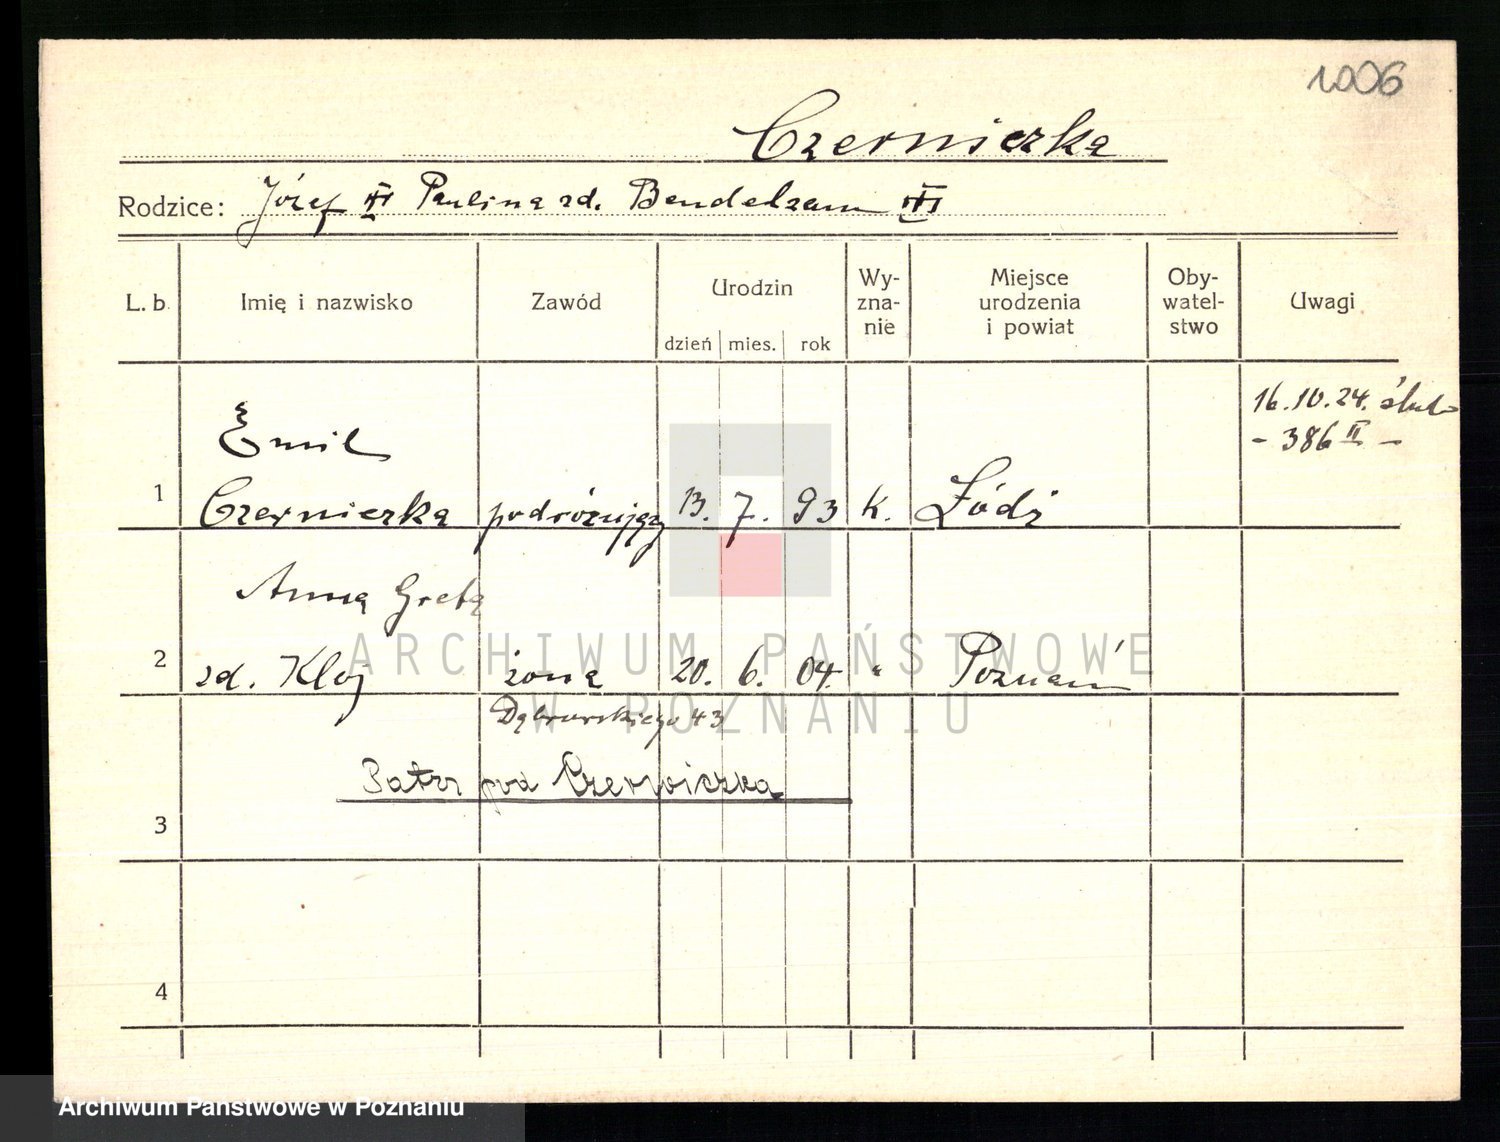 1006
Czerniczka
Rodzice: Józef Paulina zd. Bendelzam
L. b. Imię i nazwisko Zawód Urodzin dzień mies. rok Wy-zna-nie Miejsce urodzenia i powiat Oby-watel-stwo Uwagi
16.10.24. ślub
- 386 II -
Emil
1 Czerniczka podróżujący 13. 7. 93 k. Łódź
Anna Greta
2 zd. Kloj żona 20. 6. 04. " Poznań
Dąbrowskiego 43
Patrz pod Czerwiczka
3
4
ARCHIWUM PAŃSTWOWE
W POZNANIU
Archiwum Państwowe w Poznaniu